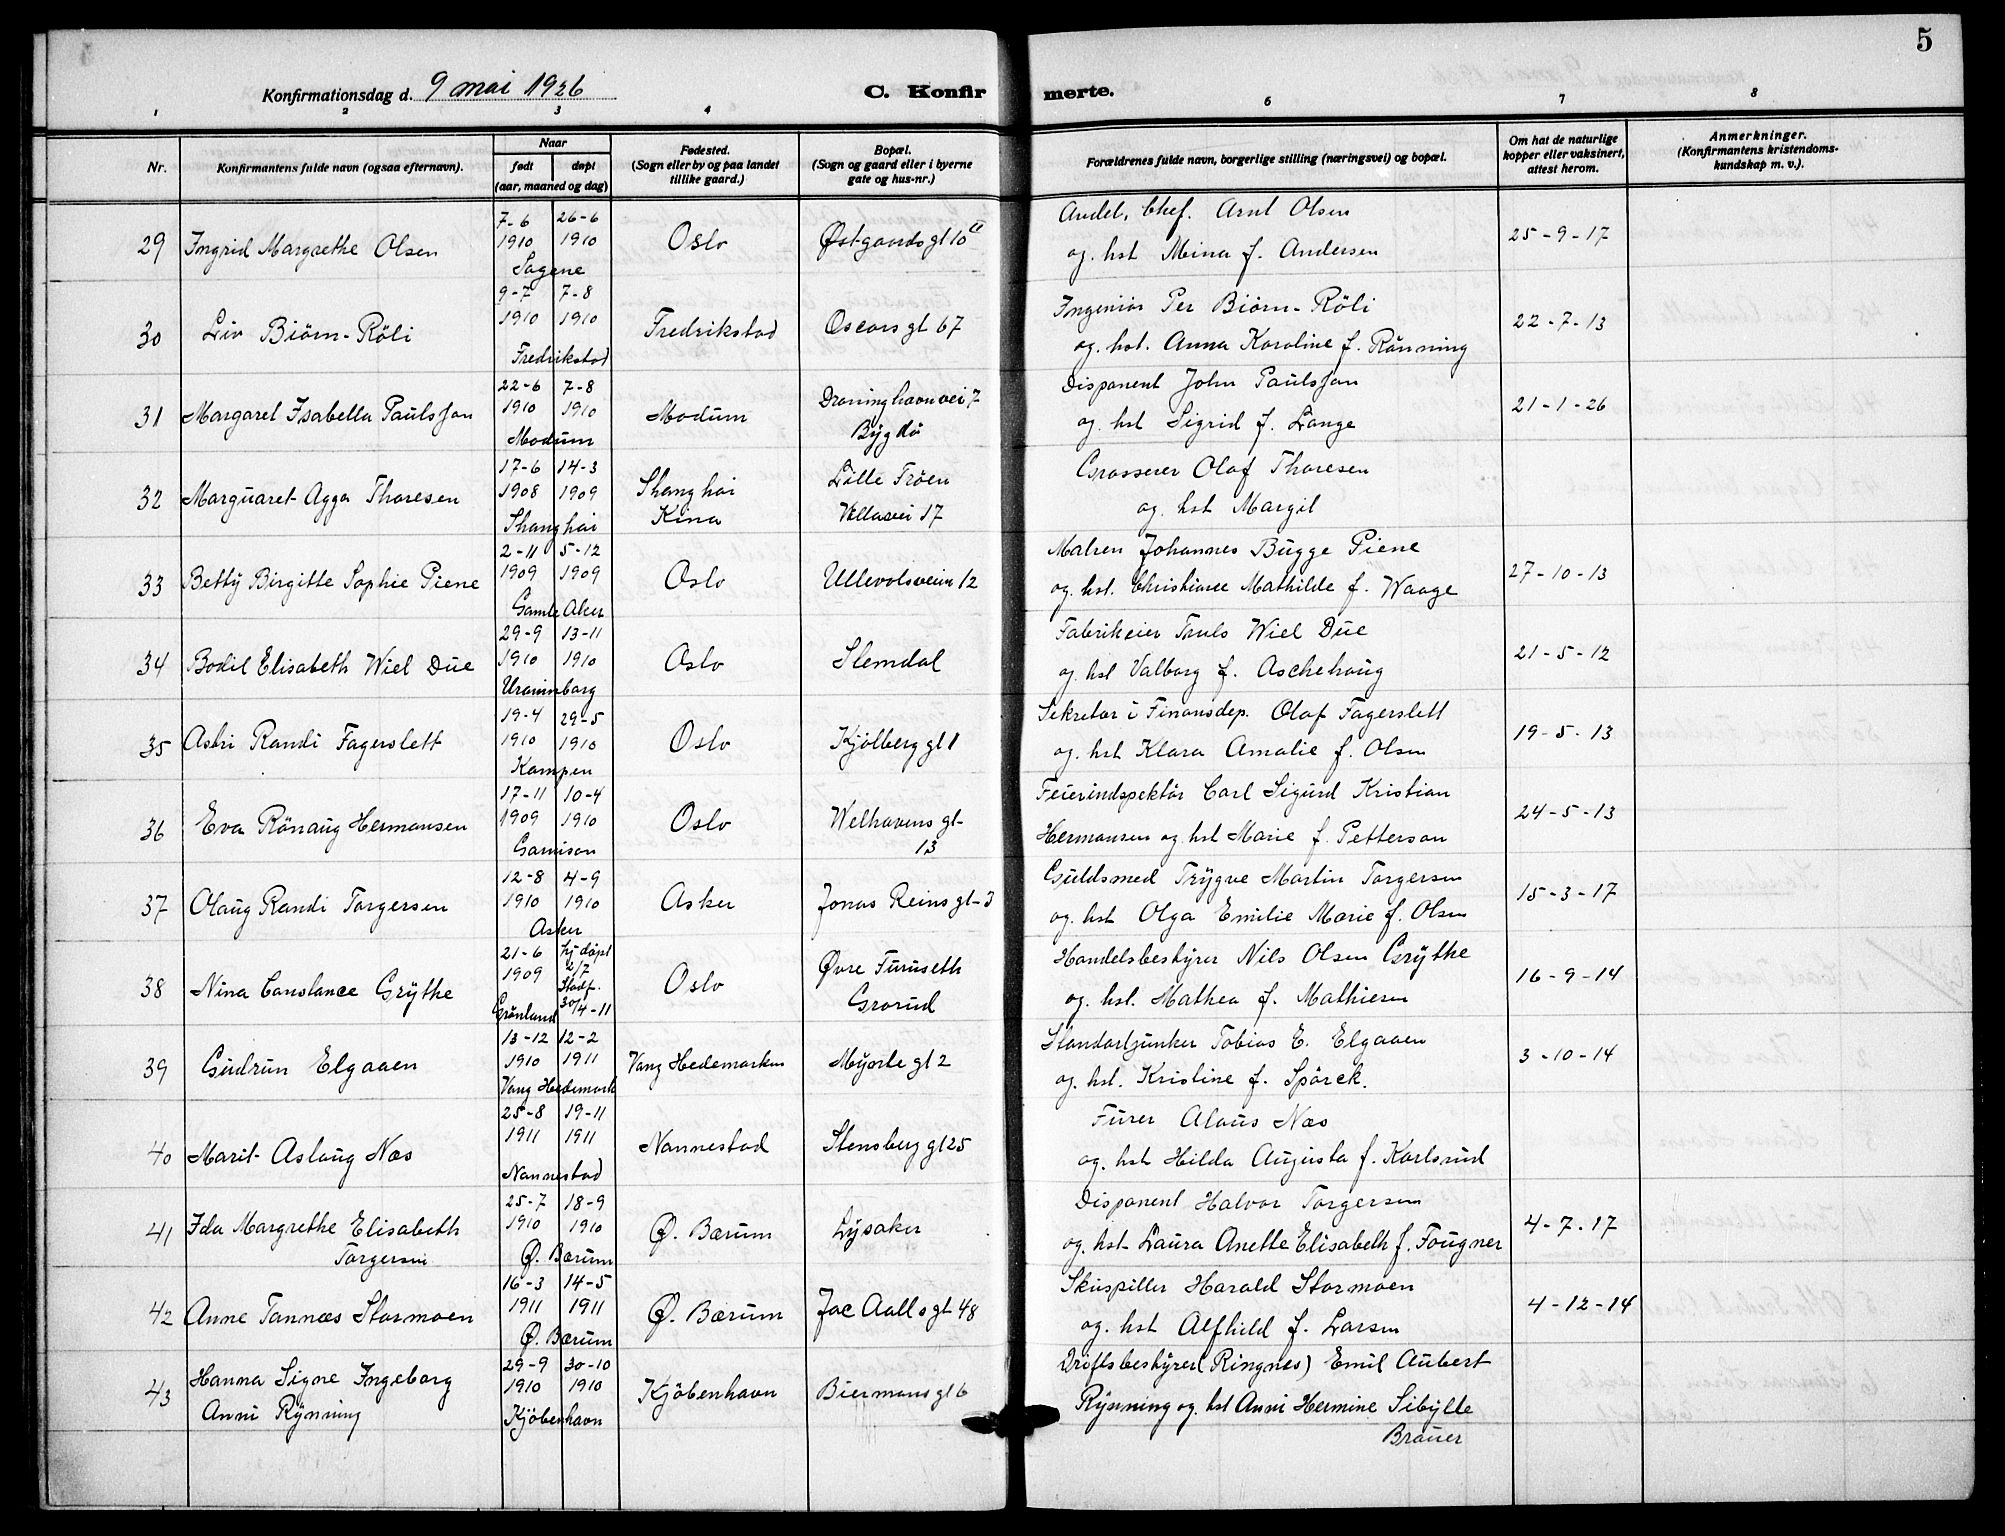 5
Konfirmationsdag d. 9 mai 1926
C. Konfirmerte.
1 2 3 4 6 7 8
Nr.
Konfirmantens fulde navn (ogsaa efternavn).
Naar
født døpt
(aar, maaned og dag)
Fødested.
(Sogn eller by og paa landet
tillike gaard.)
Bopæl.
(Sogn og gaard eller i byerne
gate og hus-nr.)
Forældrenes fulde navn, borgerlige stilling (næringsvei) og bopæl.
Om hat de naturlige
kopper eller vaksinert,
attest herom.
Anmerkninger.
(Konfirmantens kristendoms-
kundskap m. v.).
29 Ingrid Margrethe Olsen
7-6 26-6
1910 1910
Sagene
Oslo
Østgaardsgt 10
Avdel. Chef. Arnt Olsen
og. hst Mina f. Andersen
25-9-17
30 Liv Biörn-Röli
9-7 7-8
1910 1910
Fredrikstad
Fredrikstad
Oscarsgt 67
Ingeniör Per Biörn-Röli
og. hst. Anna Karoline f. Rönning
22-7-13
31 Margaret Isabella Paulsson
22-6 7-8
1910 1910
Modum
Modum
Droninghavnvei 7
Bygdö
Disponent John Paulsson
og. hst Sigrid f. Lange
21-1-26
32 Marguaret Agga Thoresen
17-6 14-3
1908 1909
Shanghai
Shanghai
Kina
Lille Fröen
Villavei 17
Grosserer Olaf Thoresen
og. hst Margit
33 Betty Birgitte Sophie Piene
2-11 5-12
1909 1909
Gamle Aker
Oslo
Ullevolsveien 12
Malren Johannes Bugge Piene
og. hst. Christiane Mathilde f. Waage
27-10-13
34 Bodil Elisabeth Wiel Due
29-9 13-11
1910 1910
Uranienborg
Oslo
Slemdal
Fabrikeier Truls Wiel Due
og. hst Valborg f. Aschehoug
21-5-12
35 Astri Randi Fagerslett
19-4 29-5
1910 1910
Kampen
Oslo
Kjölberggt 1
Sekretær i Finansdep. Olaf Fagerslett
og. hst Klara Amalie f. Olsen
19-5-13
36 Eva Rönaug Hermansen
17-11 10-4
1909 1910
Garnison
Oslo
Welhavens gt-
13
Feierindspektör Carl Sigurd Kristian
Hermansen og hst Marie f. Petterson
24-5-13
37 Olaug Randi Torgersen
12-8 4-9
1910 1910
Asker
Asker
Jonas Reinsgt-3
Guldsmed Trygve Martin Torgersen
og. hst Olga Emilie Marie f. Olsen
15-3-17
38 Nina Constance Grythe
21-6 hj döpt
1909 2/7
Stadf.
Grönland 30/4-11
Oslo
Øvre Furuseth
Grorud
Handelsbestyrer Nils Olsen Grythe
og. hst. Mathea f. Mathiesen
16-9-14
39 Gudrun Elgaaen
13-12 12-2
1910 1911
Vang Hedemark
Vang Hedemarken
Myrte gt 2
Standartjunker Tobias E. Elgaaen
og. hst. Kristine f. Spörck.
3-10-14
40 Marit Aslaug Næs
25-8 19-11
1911 1911
Nannestad
Nannestad
Stensberggt 25
Furer Alaus Næs
og. hst Hilda Augusta f. Karlsrud
41 Ida Margrethe Elisabeth
Torgersen
25-7 18-9
1910 1910
Ø. Bærum
Ø. Bærum
Lysaker
Disponent Halvor Torgersen
og. hst Laura Anette Elisabeth f. Fougner
4-7-17
42 Anne Tannæs Stormoen
16-3 14-5
1911 1911
Ø. Bærum
Ø. Bærum
Jac Aalls gt 48
Skuspiller Harald Stormoen
og. hst Alfhild f. Larsen
4-12-14
43 Hanna Signe Ingeborg
Anni Rynning
29-9 30-10
1910 1910
Kjöbenhavn
Kjöbenhavn
Biermansgt 6
Driftsbestyrer (Ringnes) Emil Aubert
Rynning og. hst Anni Hermine Sibylle
Brauer